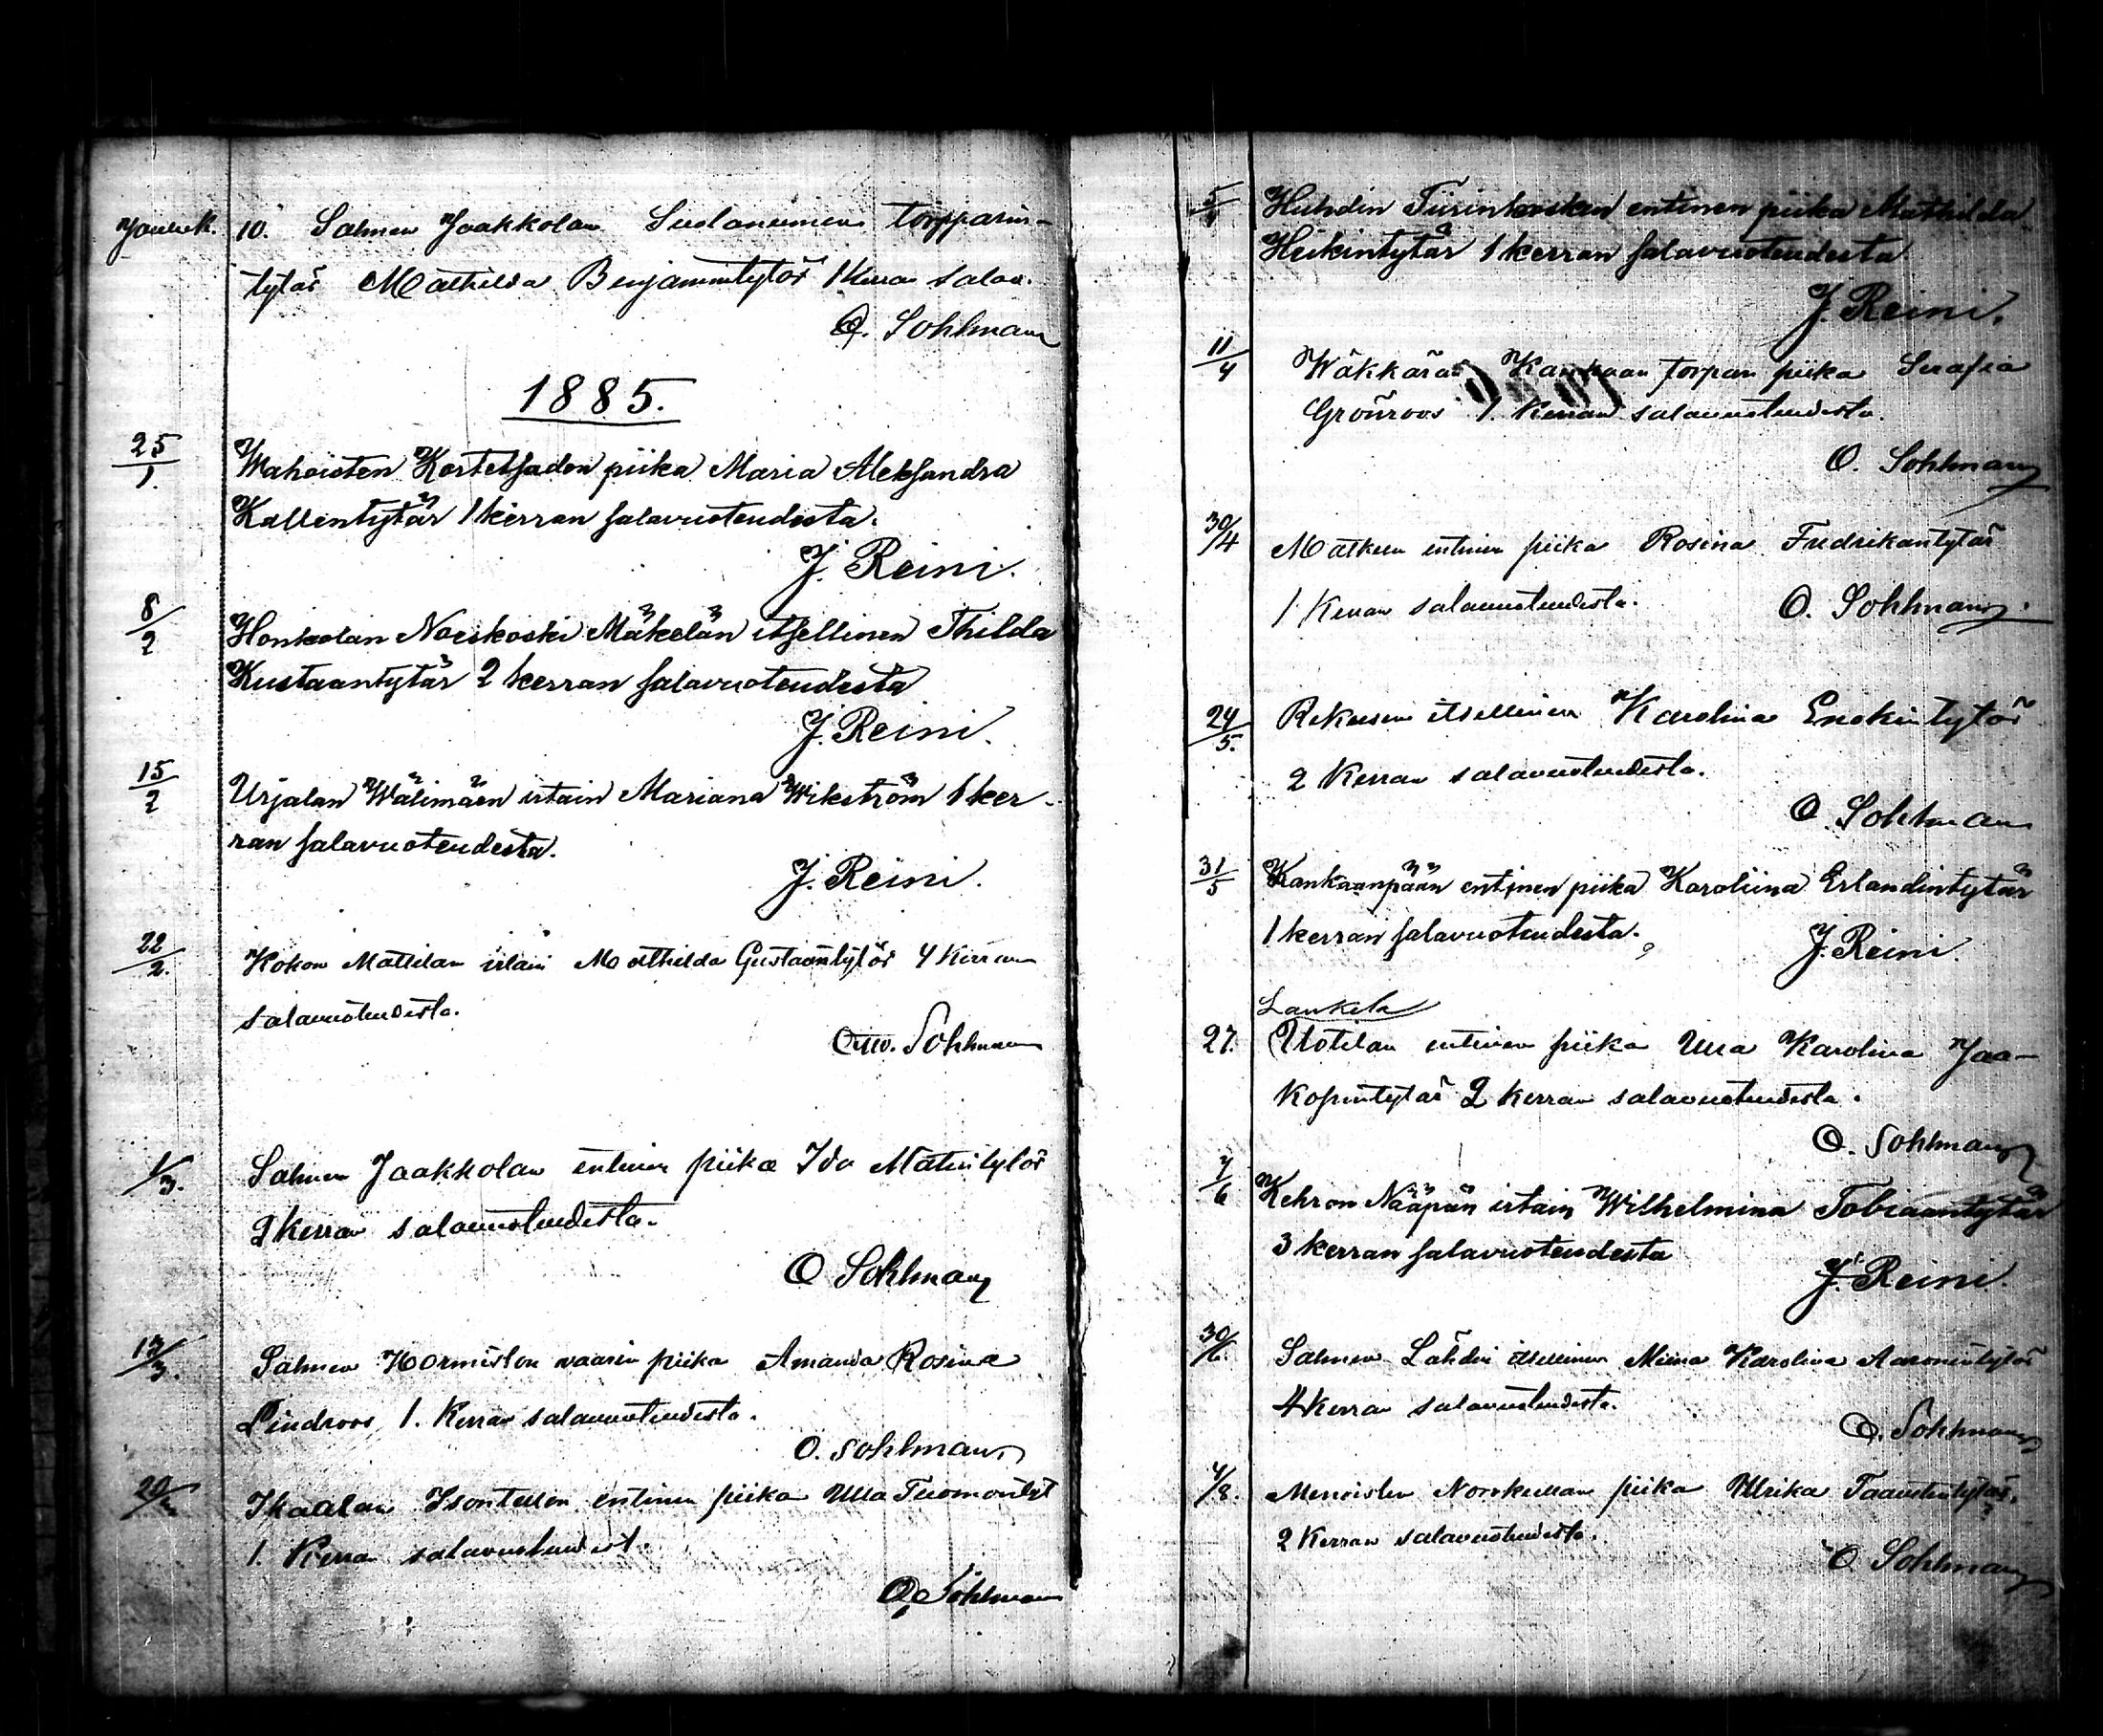 Jouluk. 10. Salmen Jaakkolan torpparin-
tytär Mathilda Benjamintytär 1 kerran salav.
O. Sohlman
1885.
25/1. Wahoisten piika Maria Aleksandra
Kallentytär 1 kerran salavuoteudesta.
J. Reini.
8/2 Honkolan Nooskoski Mäkelän itsellinen Thilda
Kustaantytär 2 kerran salavuoteudesta
J. Reini.
15/2 Urjalan Wälimäen irtain Mariana Wikström 1 ker-
ran salavuoteudesta.
J. Reini.
22/2. Kokon Mattilan irtain Mathilda Gustaantytär 4 kerran
salavuoteudesta.
Otto. Sohlman
1/3. Salmen Jaakkolan entinen piika Ida Matintytär
2 kerran salavuoteudesta.
O Sohlman
13/3. Salmen Hormiston vaarin piika Amanda Rosina
Lindroos 1. kerran salavuoteudesta.
O. Sohlman
Ikaalan Isontallon entinen piika Ulla Tuomontyt
1. kerran salavuoteudest.
O. Sohlman
5/4 Huhdin entinen piika Mathilda
Heikintytär 1 kerran salavuoteudesta.
J. Reini.
11/4 Wäkkärän Kankaan torpan piika Serafia
Grönroos 1. kerran salavuoteudesta.
O. Sohlman
30/4 Matkun entinen piika Rosina Fredrikantytär
1 kerran salavuoteudesta. O. Sohlman.
24/5. Rekusen itsellinen Karolina Enokintytär
2 kerran salavuoteudesta.
O. Sohlman
31/5 Kankaanpään entinen piika Karoliina Erlandintytär
1 kerran salavuoteudesta. J. Reini.
Lankela
27. Uotilan entinen piika Ulla Karolina Jaa-
kopintytär 2 kerran salavuoteudesta.
O. Sohlman
7/6 Kehron Nääpän irtain Wilhelmina Tobiaantytär
3 kerran salavuoteudesta
J. Reini.
30/6. Salmen Lähden itsellinen Miina Karolina Aaronintytär
4 kerran salavuoteudesta.
O. Sohlman
4/8. Menoisten piika Ulrika Taavetintytär.
2 kerran salavuoteudesta.
O Sohlman